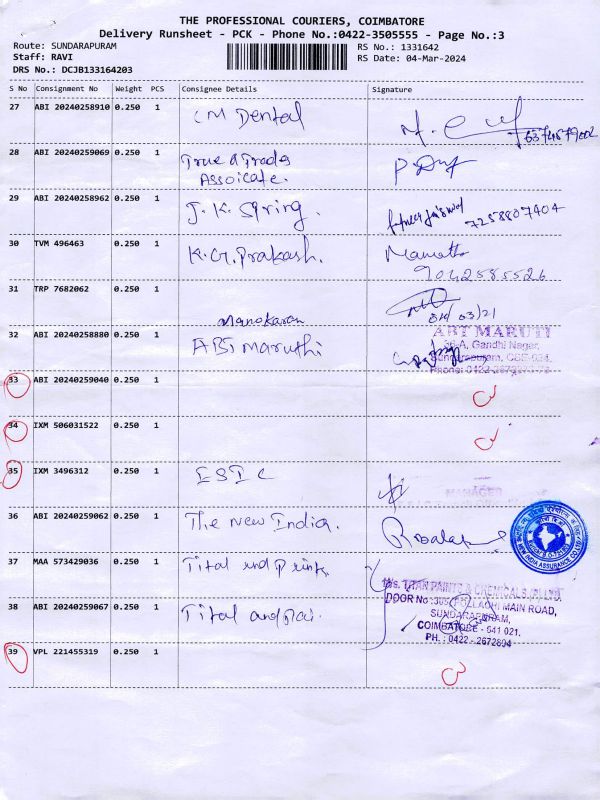 THE PROFESSIONAL COURIERS, COIMBATORE
Delivery Runsheet - PCK - Phone No.:0422-3505555 - Page No.:3
Route: SUNDARAPURAM
RS No.: 1331642
Staff: RAVI
RS Date: 04-Mar-2024
DRS No.: DCJB133164203
S No Consignment No Weight PCS Consignee Details Signature
27 ABI 20240258910 0.250 1 CM Dental
28 ABI 20240259069 0.250 1 True d Trades
Assoicate.
29 ABI 20240258962 0.250 1 J. K. Spring. 7258807404
30 TVM 496463 0.250 1 K.G. Prakash. Mamatha
9042585526
31 TRP 7682062 0.250 1 Manokaran
32 ABI 20240258880 0.250 1 ABi Maruthi ABT MARUTI
36-A, Gandhi Nagar,
Sundarapuram, CBE-024.
33 ABI 20240259040 0.250 1
34 IXM 506031522 0.250 1
35 IXM 3496312 0.250 1 ESIC
MANAGER
36 ABI 20240259062 0.250 1 The New India.
NEW INDIA ASSURANCE CO LTD
37 MAA 573429036 0.250 1 Tital and
M/s. TITAN PAINTS & CHEMICALS (P) LTD.
DOOR No :305, POLLACHI MAIN ROAD,
38 ABI 20240259067 0.250 1 Tital
SUNDARAPURAM,
COIMBATORE - 641 021.
PH. : 0422 - 2672894
39 VPL 221455319 0.250 1